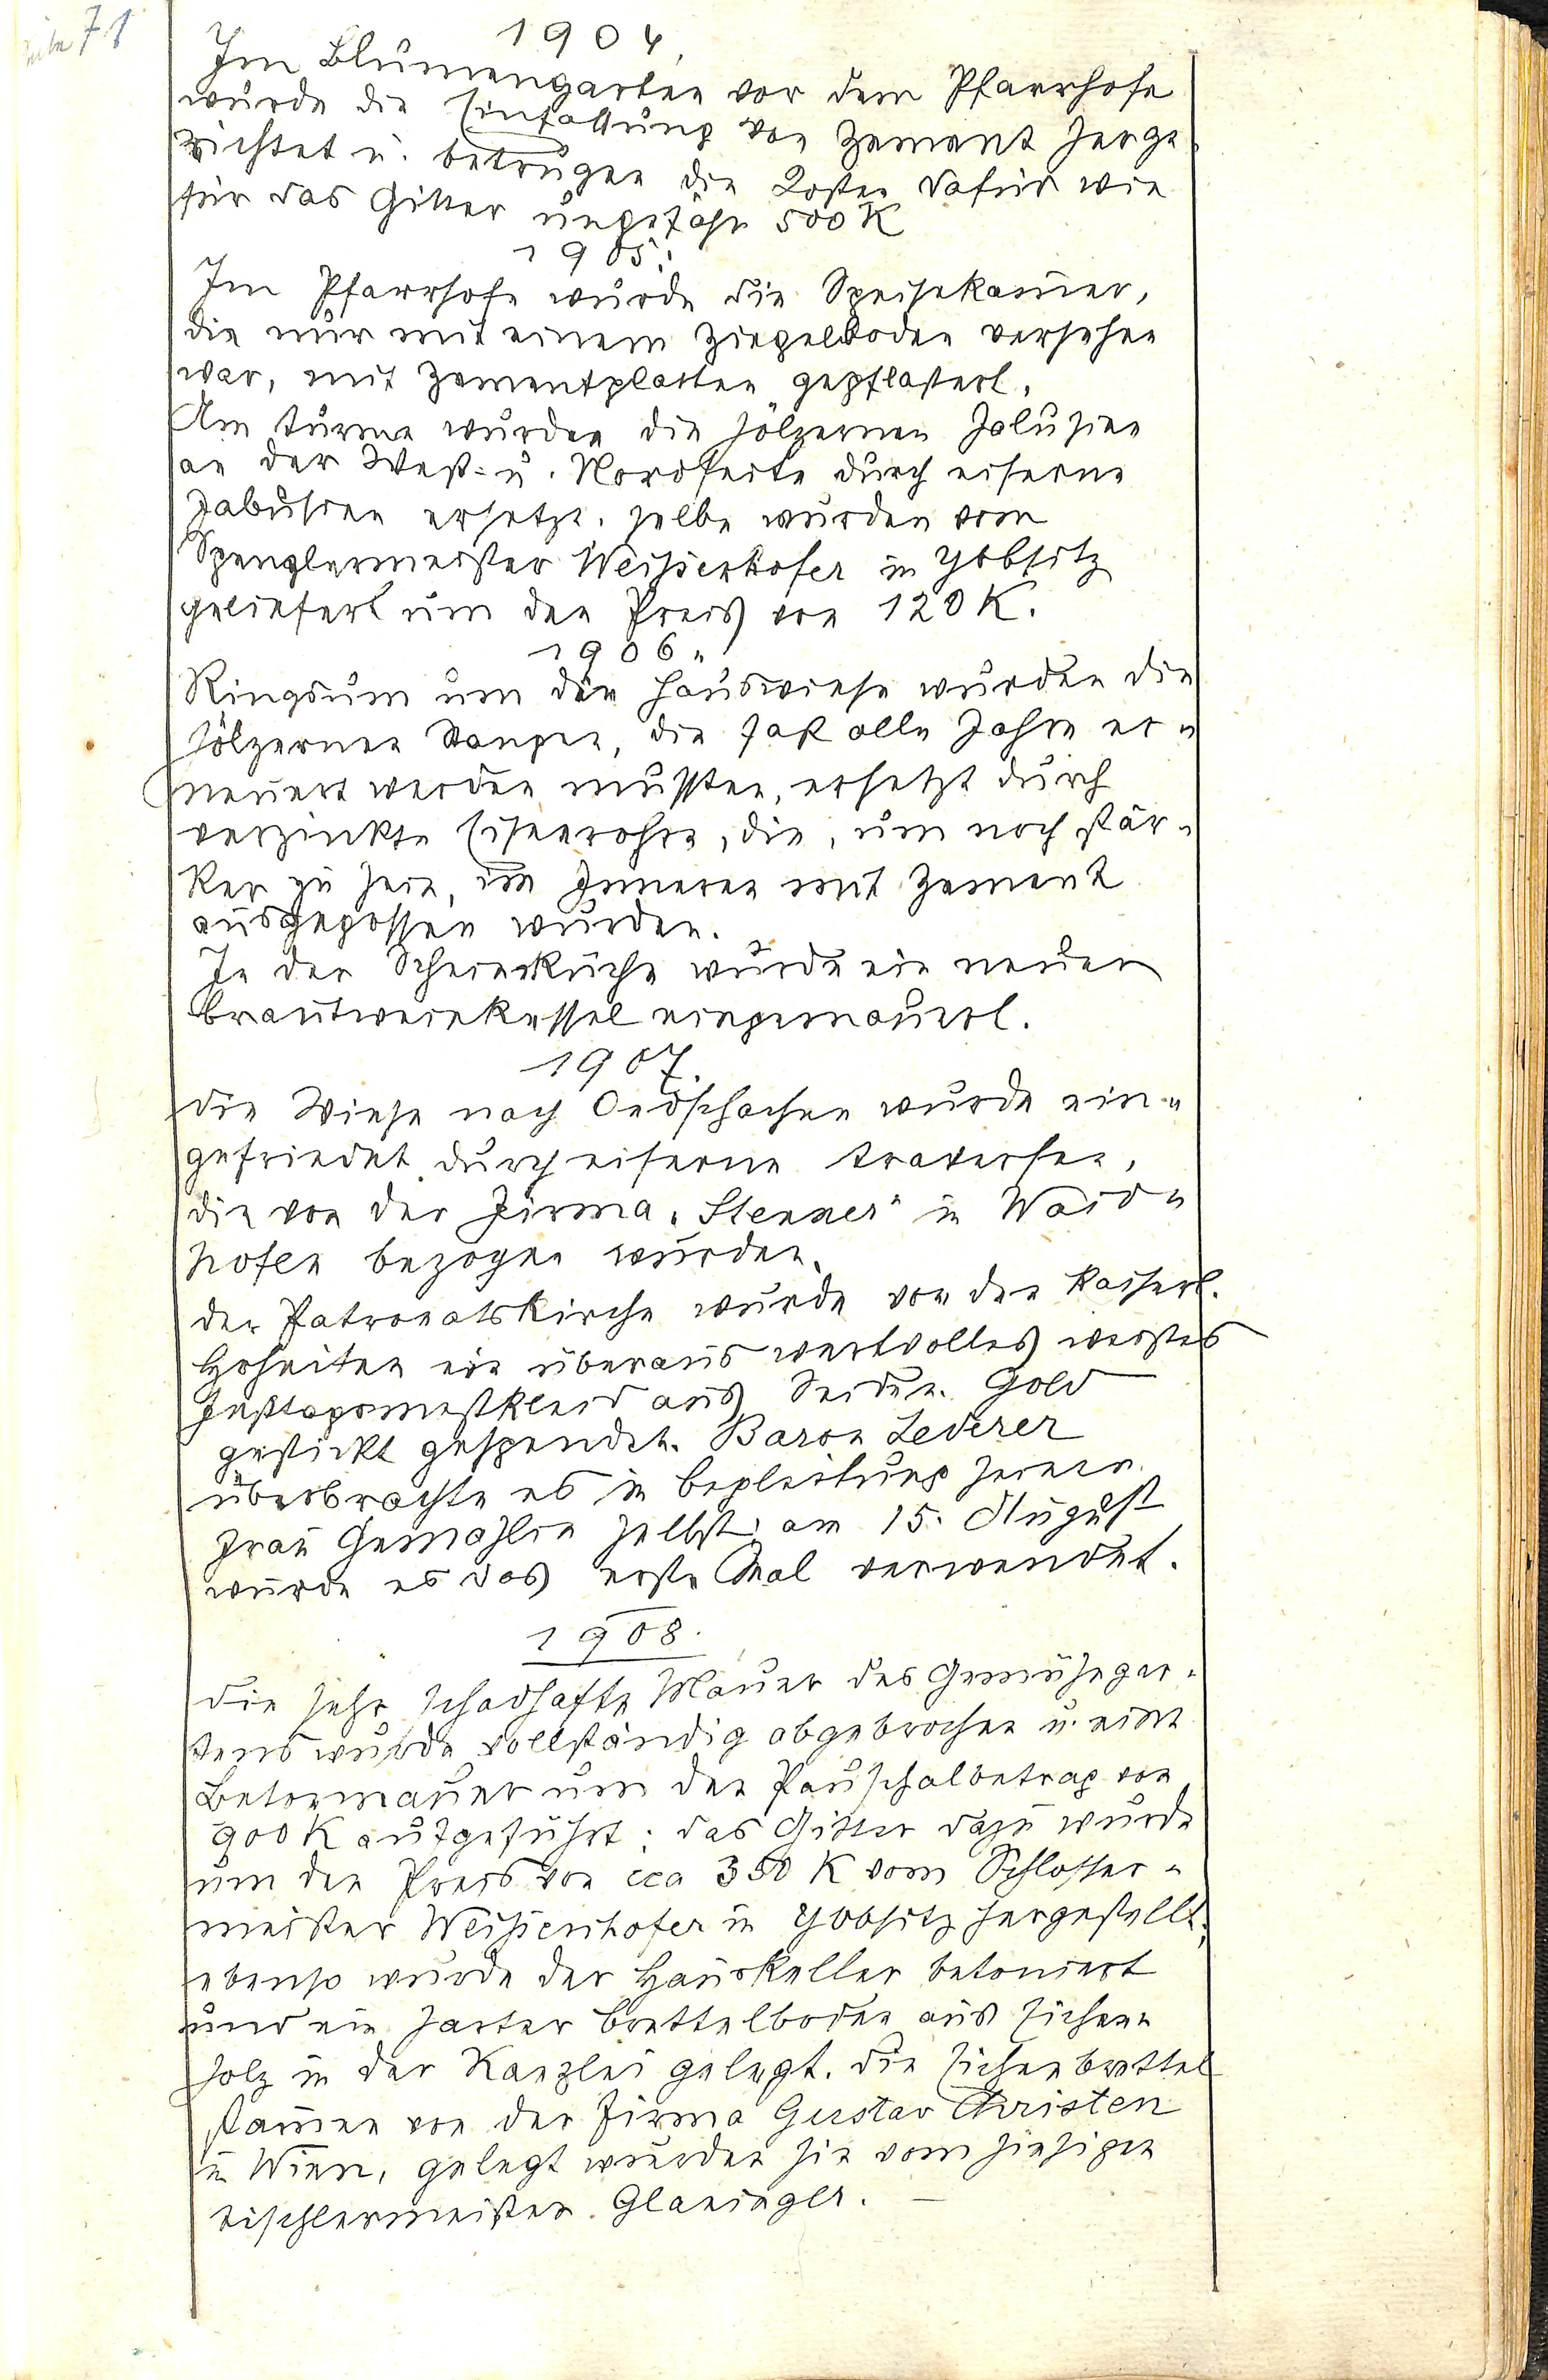 Seite 71
1904.
Im Blumengarten vor dem Pfarrhofe
wurde die Einfassung von Zement herge
richtet u. betrugen die Kosten dafür wie
für das Gitter ungefähr 500 K
1905.
Im Pfarrhofe wurde die Speisekam̄er,
die nur mit einem Ziegelboden versehen
war, mit Zementplatten gepflastert.
Am Turme wurden die hölzernen Jalusien
an der West- u. Nordseite durch eiserne
Jalusien ersetzt. Selbe wurden vom
Spenglermeister Weissenhofer in Ybbsitz
geliefert um den Preis von 120 K.
1906.
Ringsum um die Hauswiese wurden die
hölzernen Stangen, die fast alle Jahre er-
neuert werden mussten, ersetzt durch
verzinkte Eisenrohre, die, um noch stär-
ker zu sein, im Inneren mit Zement
ausgegossen wurden.
In der Scheierküche wurde ein neuer
Brantweinkessel eingemauert.
1907.
Die Wiese nach Oedschachen wurde ein-
gefriedet durch eiserne Traversen,
die von der Firma "Stenner" in Waid-
hofen bezogen wurden.
Der Patronatskirche wurde von den kaiserl.
Hoheiten ein überaus wertvolles weisses
Festtagsmesskleid aus Seide u. Gold
gestickt gespendet. Baron Lederer
überbrachte es in Begleitung seiner
Frau Gemahlin selbst; am 15. August
wurde es das erste Mal verwendet.
1908.
Die sehr schadhafte Mauer des Gemüsegar-
tens wurde vollständig abgebrochen u. eine
Betonmauer um den Pauschalbetrag von
900 K aufgeführt; das Gitter dazu wurde
um den Preis von cca 350 K vom Schlosser-
meister Weissenhofer in Ybbsitz hergestellt;
ebenso wurde der Hauskeller betoniert
und ein harter Brettelboden aus Eichen-
holz in der Kanzlei gelegt. Die Eichenbrettel
stam̄en von der Firma Gustav Christen
in Wien, gelegt wurden sie vom hiesigen
Tischlermeister Glaninger. —